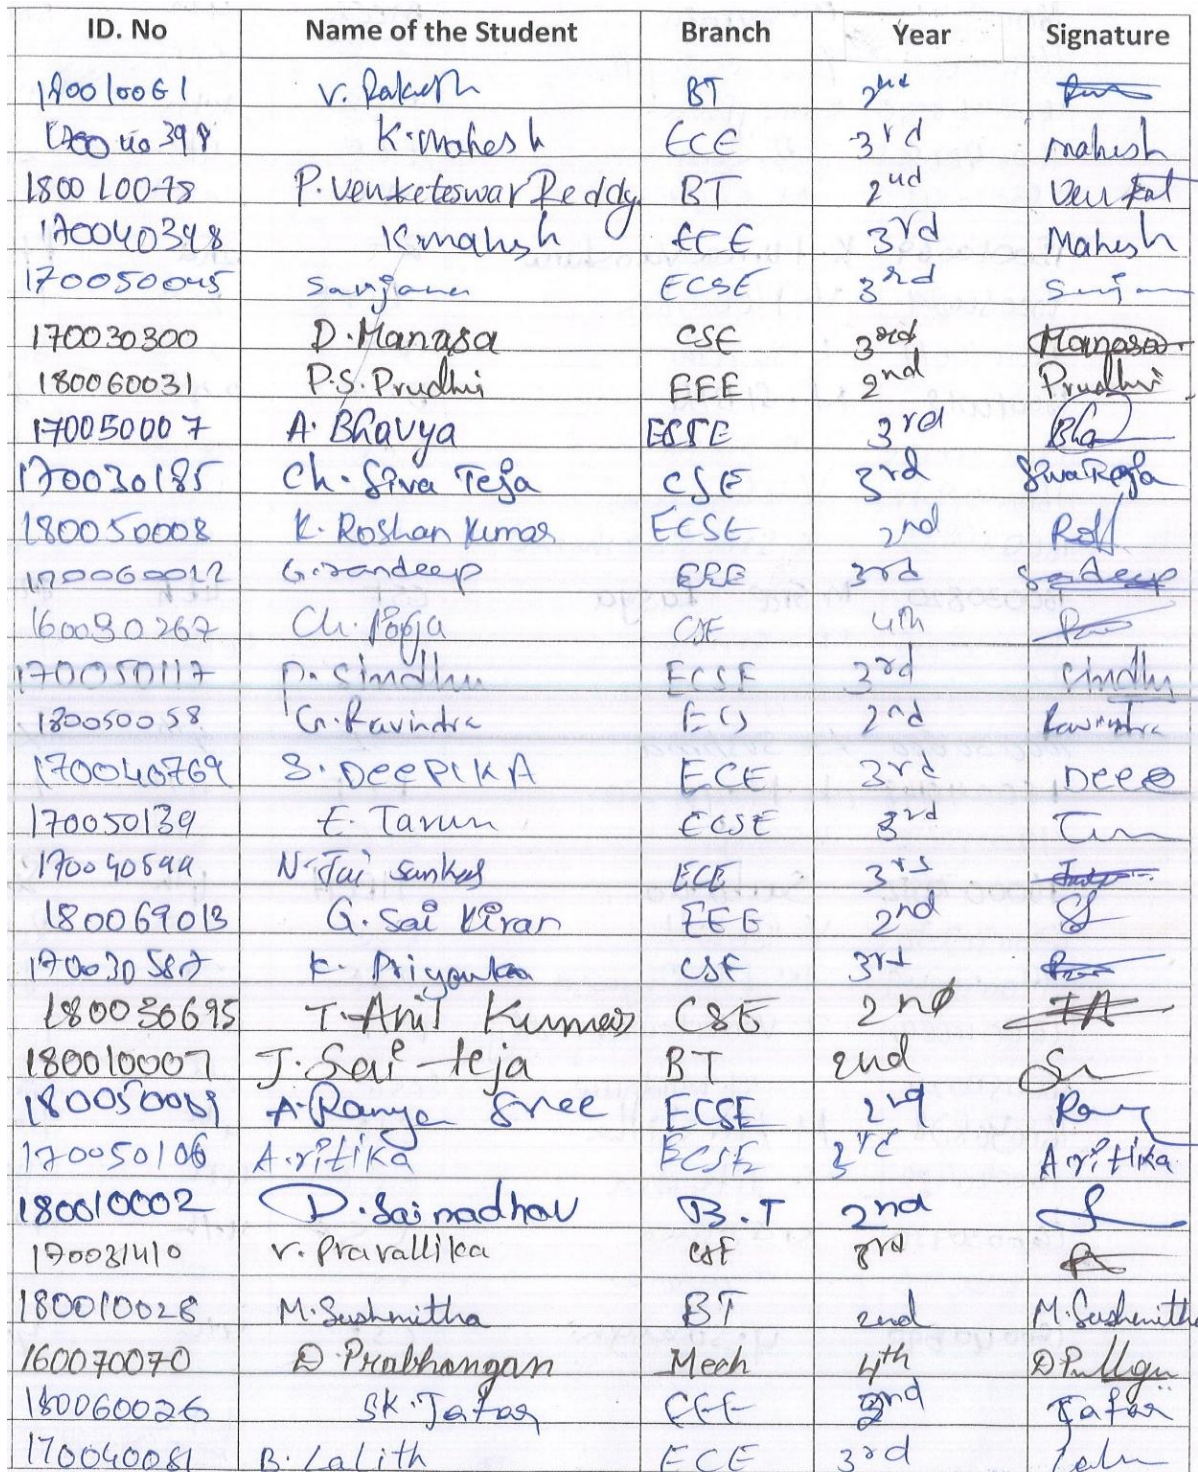 ID. No Name of the Student Branch Year Signature
180010061 V. Rakesh BT 2nd
170040398 K. Mahesh ECE 3rd mahesh
180010078 P. Venketeswar Reddy BT 2nd Venkat
170040398 K. mahesh ECE 3rd Mahesh
170050045 Sanjana ECSE 3rd
170030300 D. Manasa CSE 3rd Manasa
180060031 P.S. Prudhvi EEE 2nd Prudhvi
170050007 A. Bhavya ECSE 3rd Bha
170030185 Ch. Siva Teja CSE 3rd Siva Teja
180050008 K. Roshan Kumar ECSE 2nd
170060012 G. Sandeep EEE 3rd Sandeep
160030267 Ch. Pooja CSE 4th
170050117 P. Sindhu ECSE 3rd Sindhu
180050058 G. Ravindra 2nd Ravindra
170040769 S. DEEPIKA ECE 3rd Deep
170050139 E. Tarun ECSE 3rd
N. Jai Sankar ECE 3rd
180069013 G. Sai Kiran EEE 2nd
170030587 K. Priyanka CSE 3rd
180030695 T. Anil Kumar CSE 2nd TA
180010007 J. Sai teja BT 2nd
A. Ramya Sree ECSE 2nd
170050106 A. ritika ECSE 3rd A. ritika
180010002 D. Sai madhav B.T 2nd
170031410 V. Pravallika CSE 3rd
180010028 M. Sushmitha BT 2nd M. Sushmitha
160070070 D. Prabhangan Mech 4th
180060026 SK. Jafar EEE 2nd Jafar
170040081 B. Lalith ECE 3rd